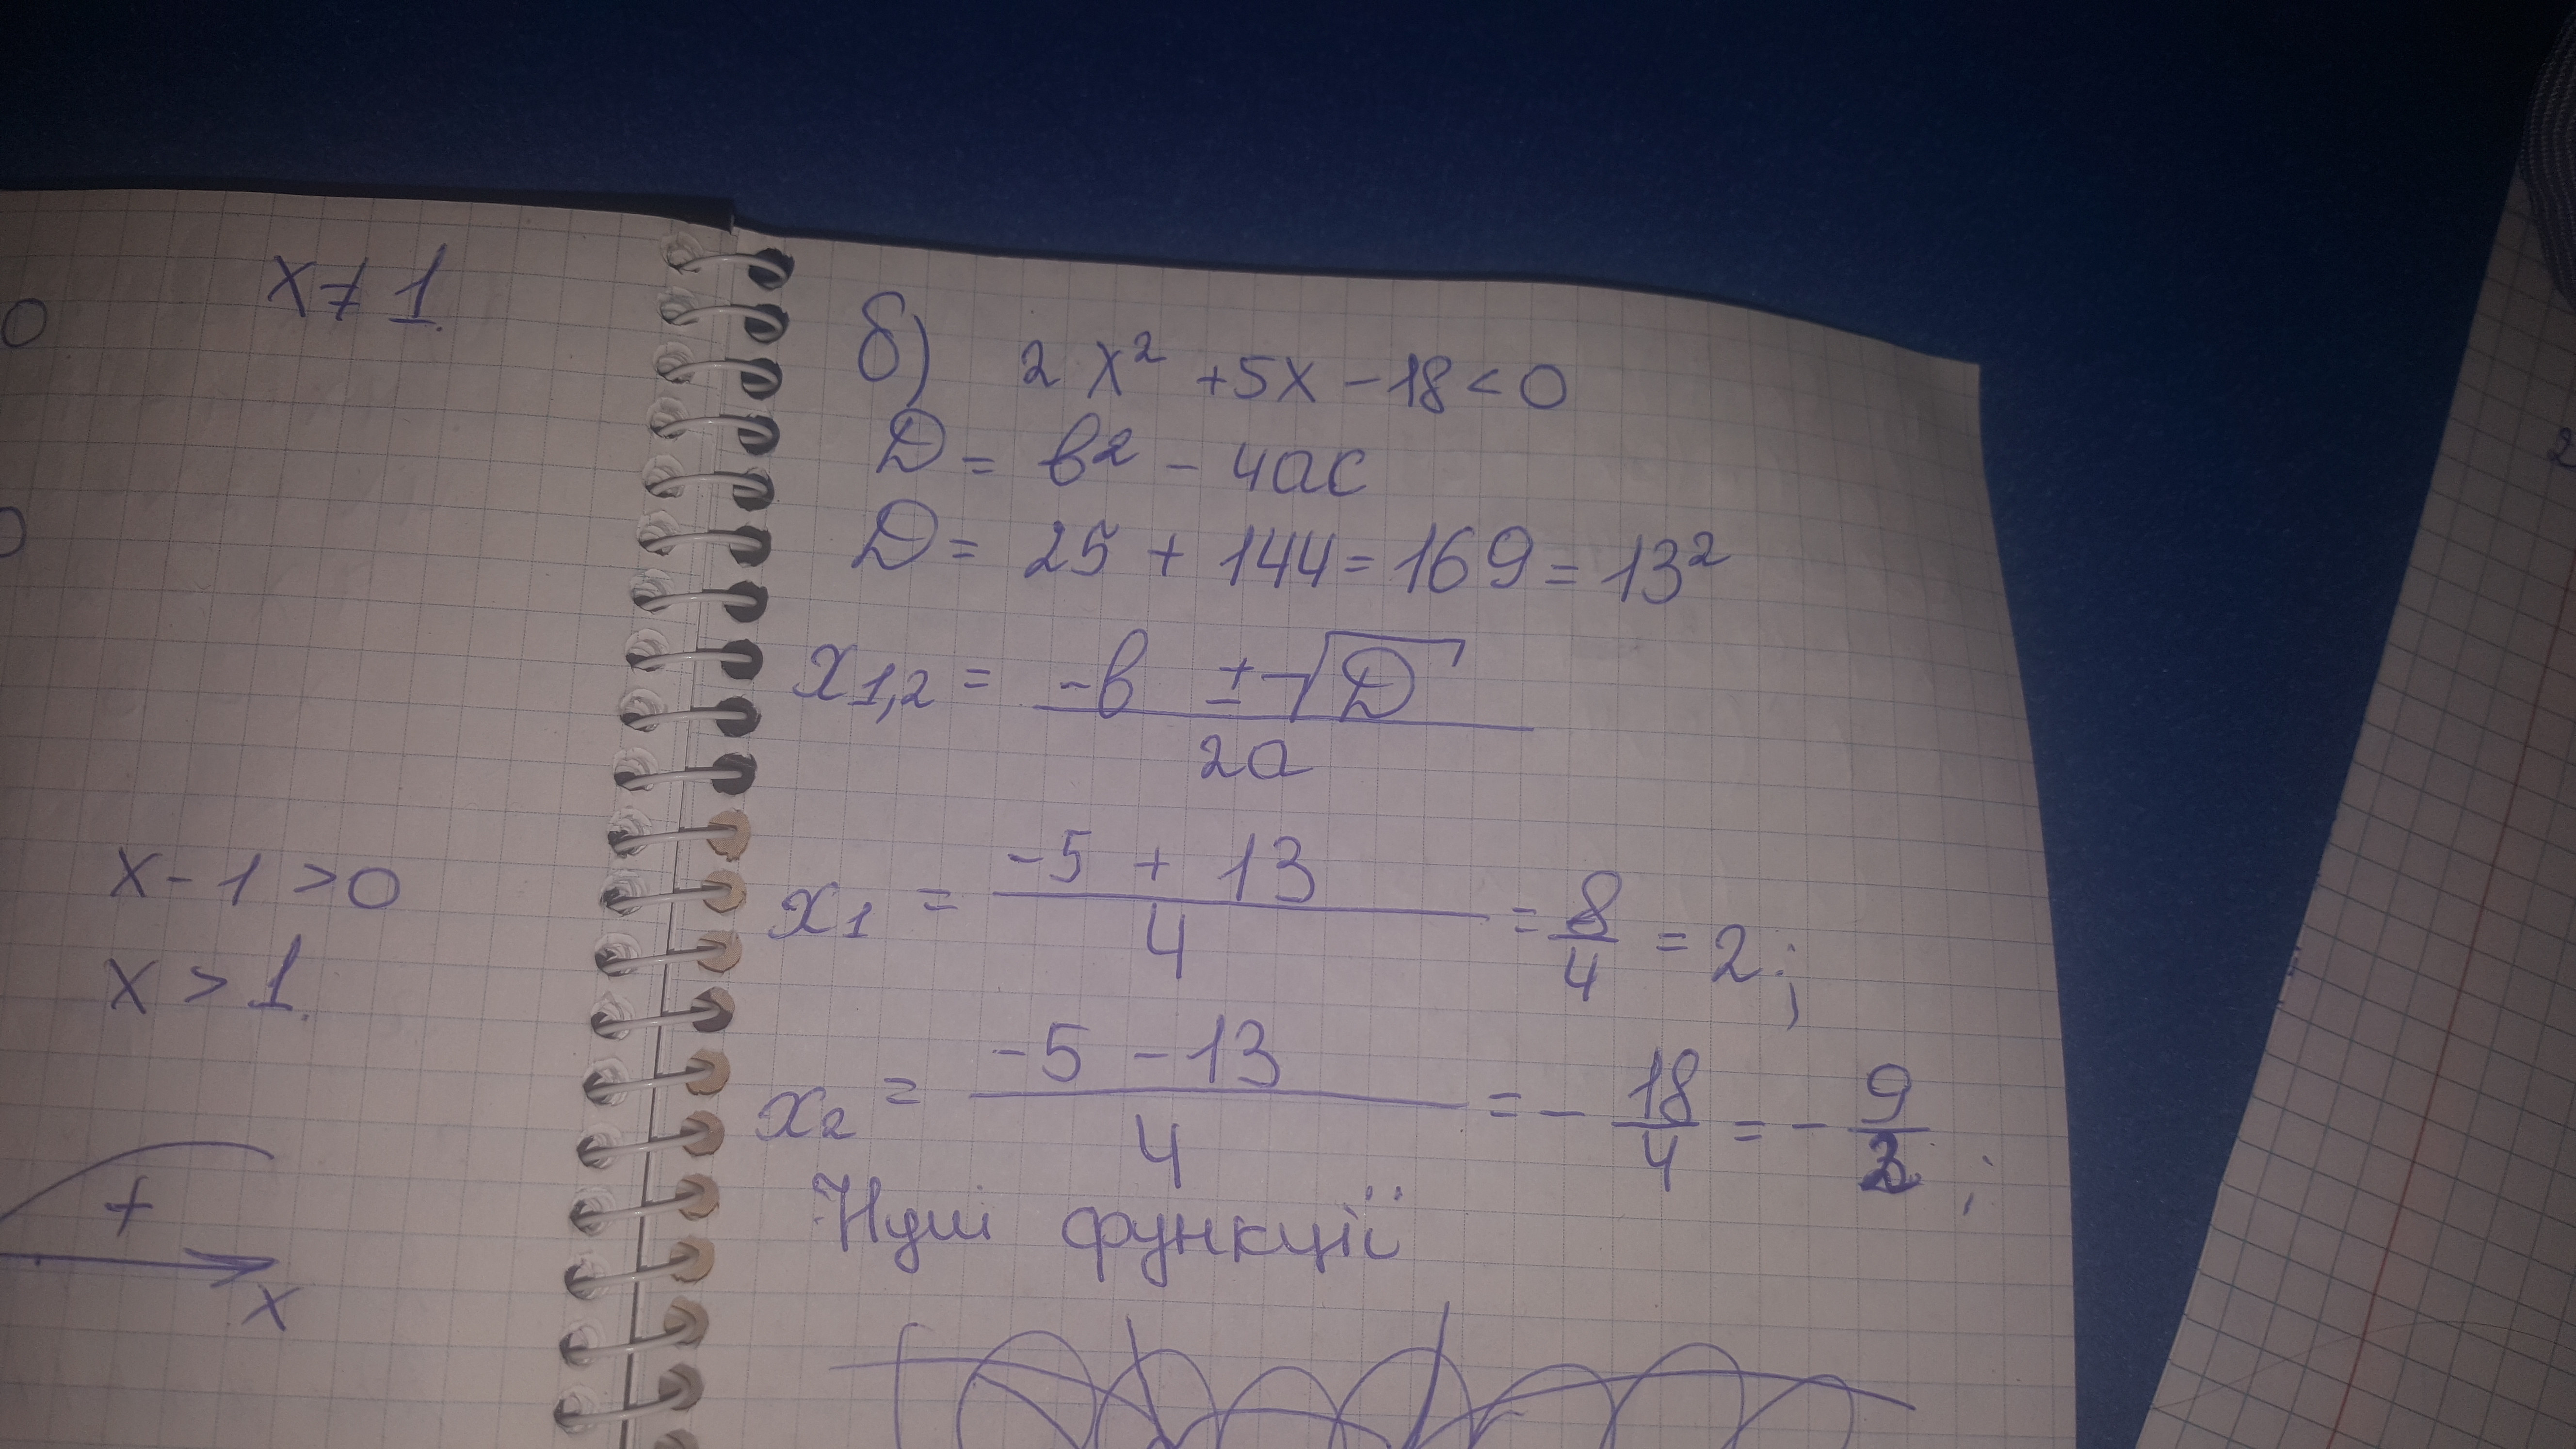 x ≠ 1.
0
0
x - 1 > 0
x > 1.
+
x
б) 2x² + 5x - 18 < 0
D = в² - 4ac
D = 25 + 144 = 169 = 13²
x1,2 = (-в ± √D) / 2a
x1 = (-5 + 13) / 4 = 8/4 = 2;
x2 = (-5 - 13) / 4 = - 18/4 = - 9/2;
Нулі функції
2